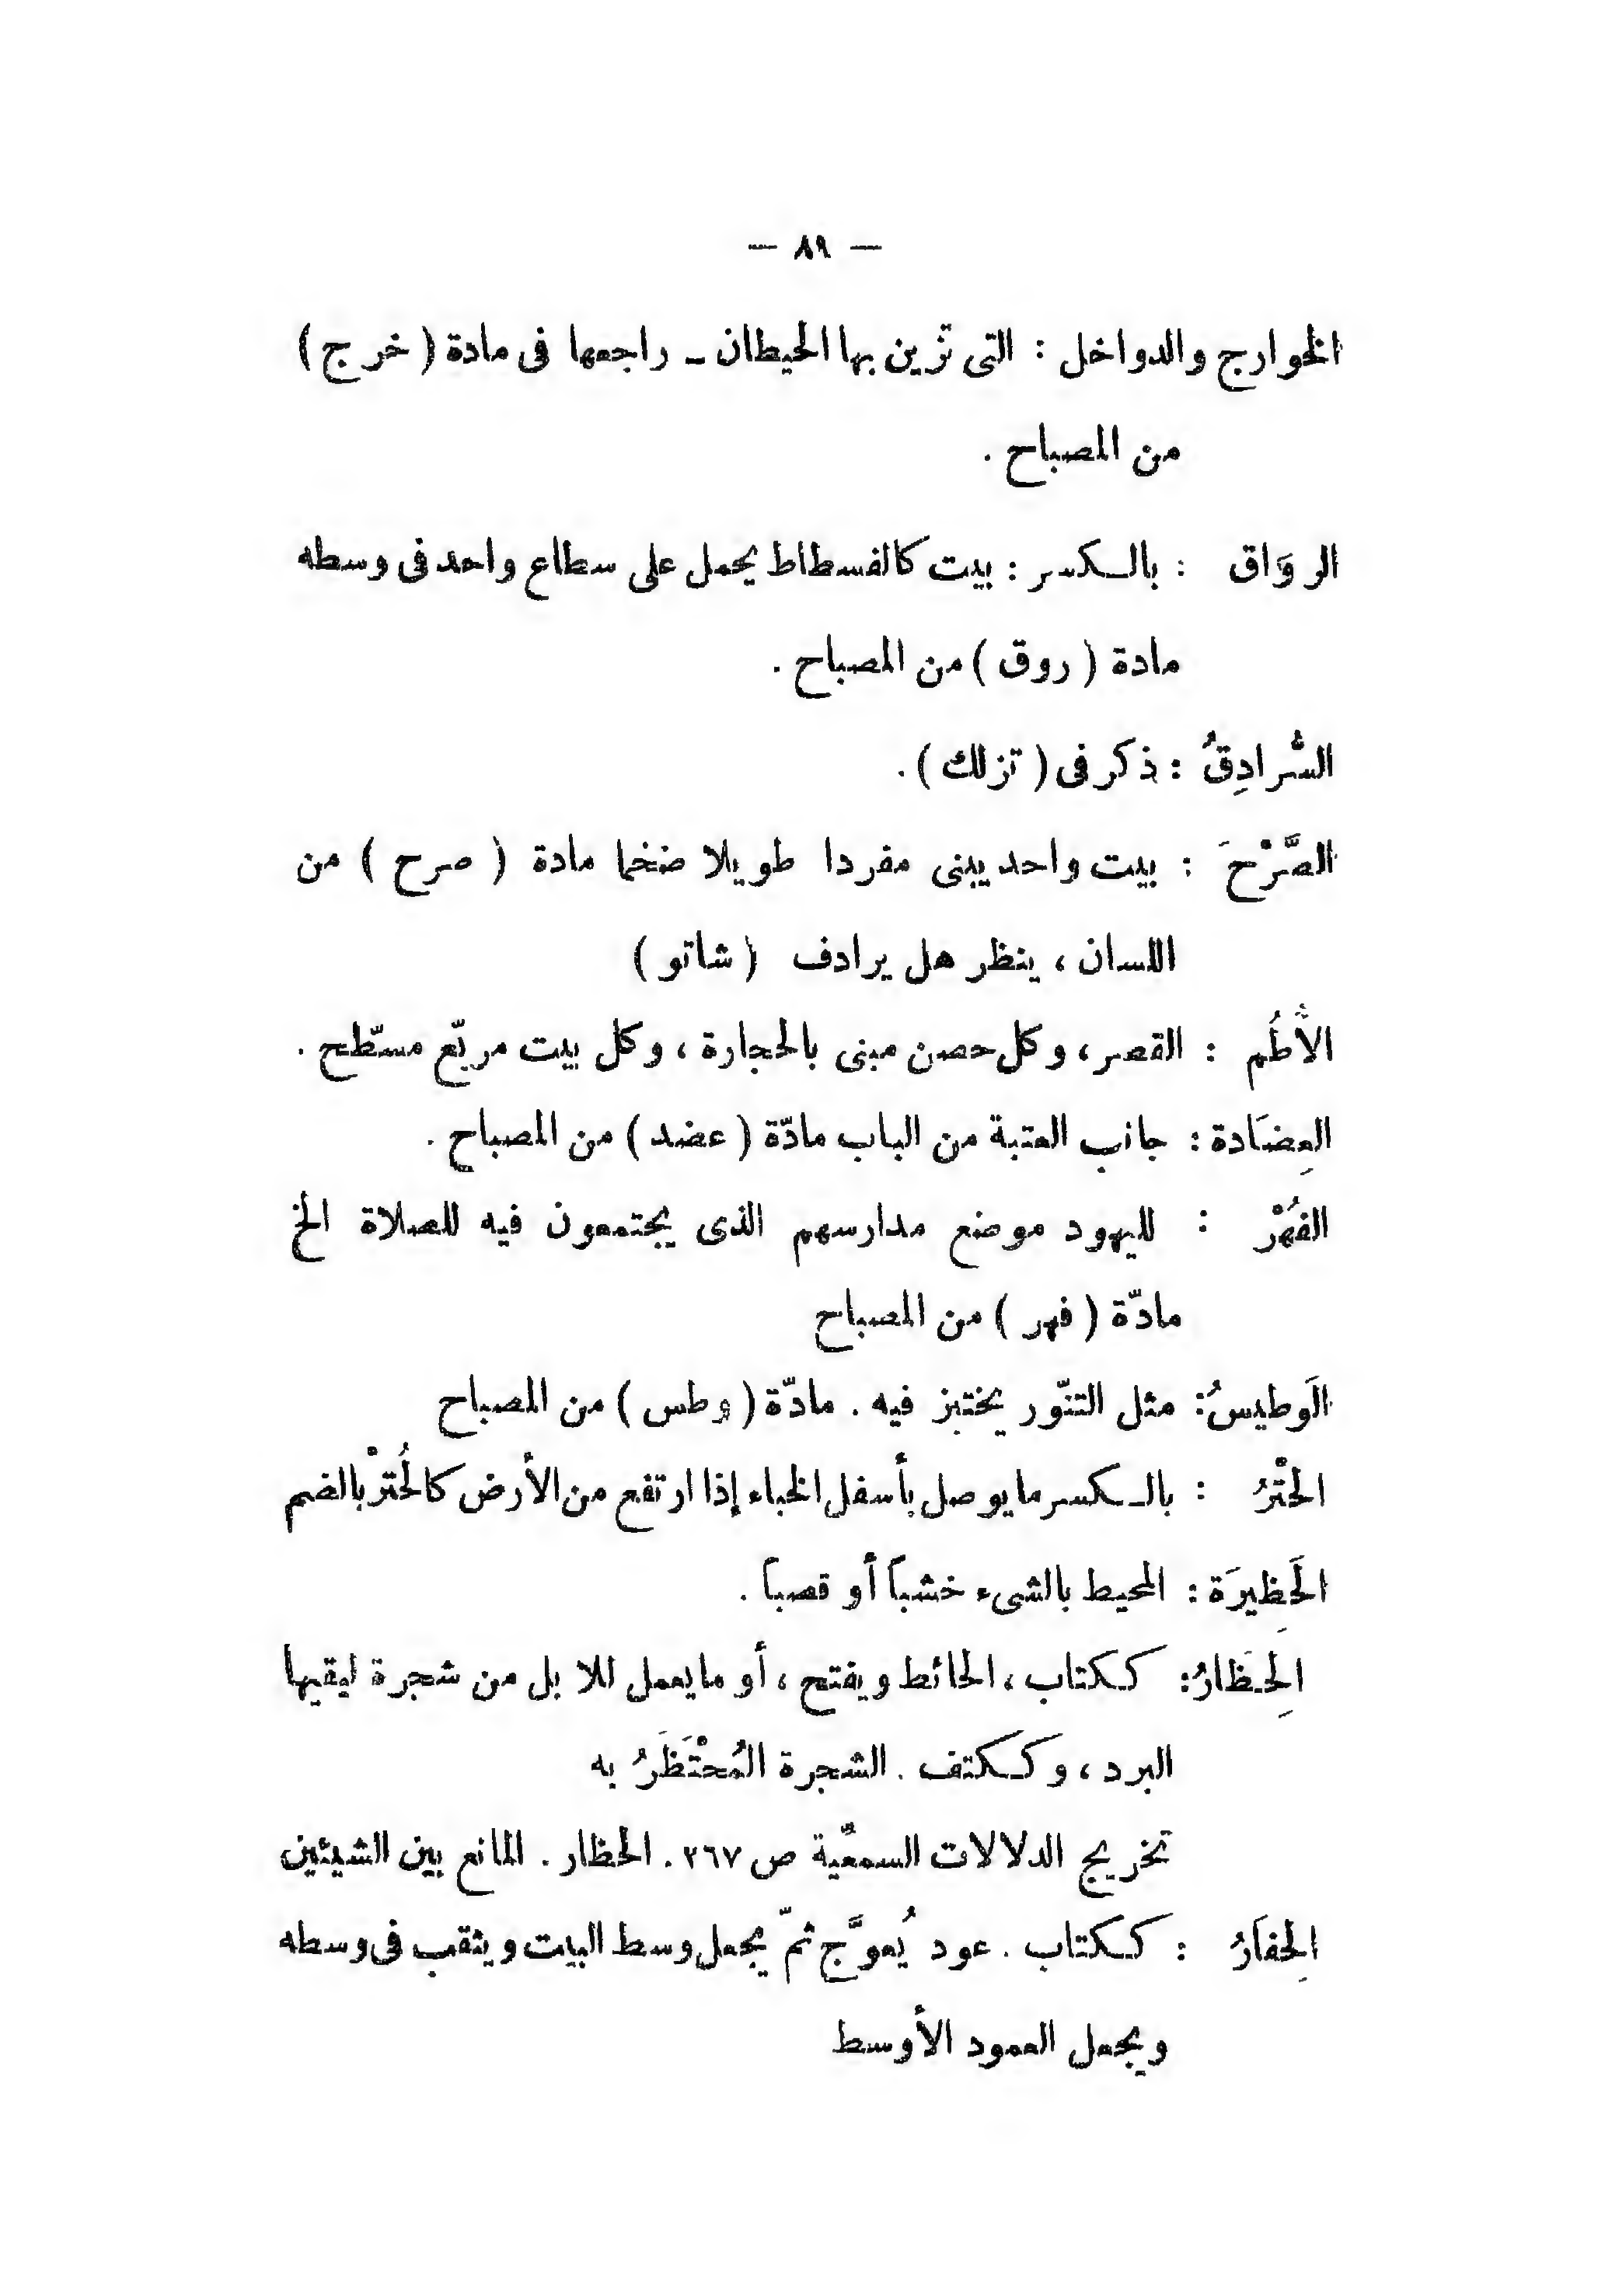 — ٨٩ —
الخوارج والدواخل : التى تزين بها الحيطان ـ راجعها فى مادة ( خرج )
من المصباح .
الروَاق : بالكسر : بيت كالفسطاط يحمل على سطاع واحد فى وسطه
مادة ( روق ) من المصباح .
السُّرادِقُ : ذكر فى ( تزلك ) .
الصَّرْحَ : بيت واحد يبنى مفردا طويلا ضخما مادة ( صرح ) من
اللسان ، ينظر هل يرادف ( شاتو )
الأُطُم : القصر ، وكل حصن مبنى بالحجارة ، وكل بيت مربّع مسطّح .
العِضَادة : جانب العتبة من الباب مادّة ( عضد ) من المصباح .
الفُهْر : لليهود موضع مدارسهم الذى يجتمعون فيه للصلاة الخ
مادّة ( فهر ) من المصباح
الوَطيسُ : مثل التنّور يختبز فيه . مادّة ( وطس ) من المصباح
الحْترُ : بالكسر ما يوصل بأسفل الخباء إذا ارتفع من الأرض كالحُترْ بالضم
الحَظِيرَة : المحيط بالشىء خشباً أو قصباً .
الِحظَارُ : ككتاب ، الحائط ويفتح ، أو ما يعمل للابل من شجرة ليقيها
البرد ، وككتف . الشجرة المُحْتَظَرُ به
تخريج الدلالات السمعّية ص ٢٦٧ . الحظار . المانع بين الشيئين
الِحفاَرُ : ككتاب . عود يُعوَّج ثمّ يجعل وسط البيت ويثقب فى وسطه
ويجعل العمود الأوسط